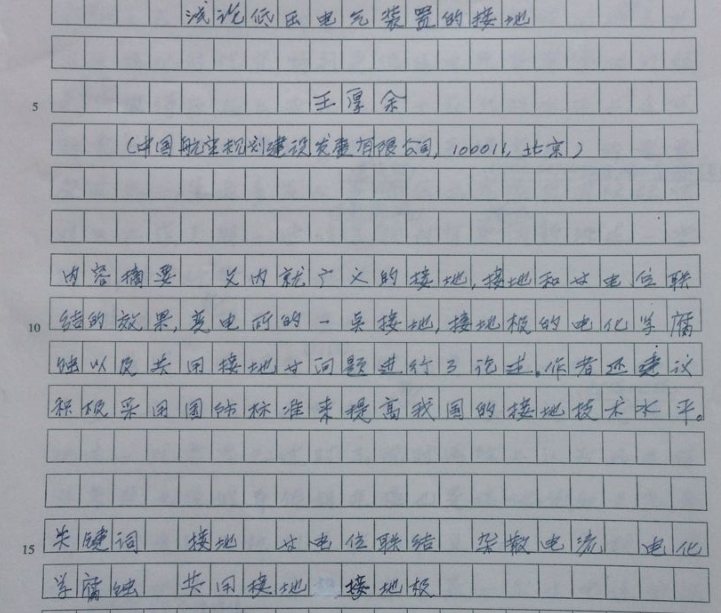 浅论低压电气装置的接地
5
王厚余
(中国航空规划建设发展有限公司, 100011, 北京)
内容摘要 文内就广义的接地,接地和等电位联
10 结的效果,变电所的一点接地,接地极的电化学腐
蚀以及共用接地等问题进行了论述。作者还建议
积极采用国际标准来提高我国的接地技术水平。
15 关键词 接地 等电位联结 杂散电流 电化
学腐蚀 共用接地 接地极